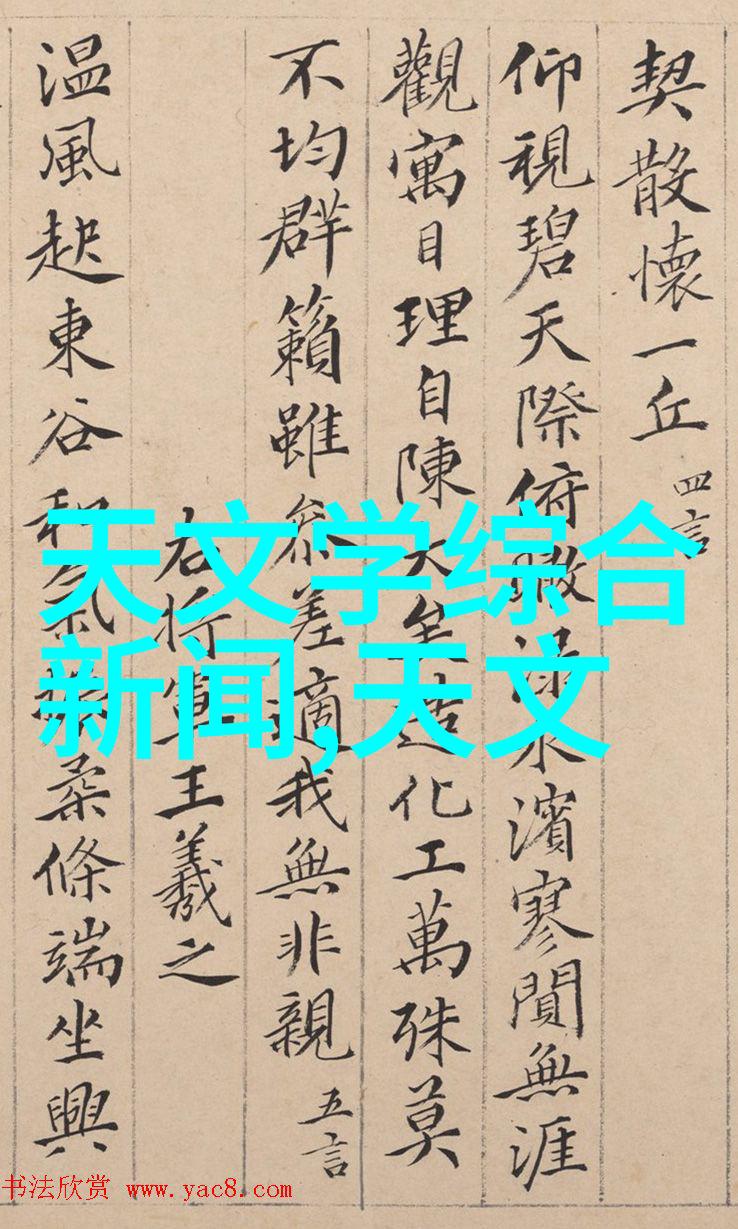 契散懷一丘 四言
仰視碧天際俯瞰淥水濱寥闃無涯
觀寓目理自陳大矣造化工萬殊莫
不均群籟雖參差適我無非親 五言
右將軍王羲之
温風起東谷和氣振柔條端坐興
天文学综合
新闻,天文
书法欣赏 www.yac8.com